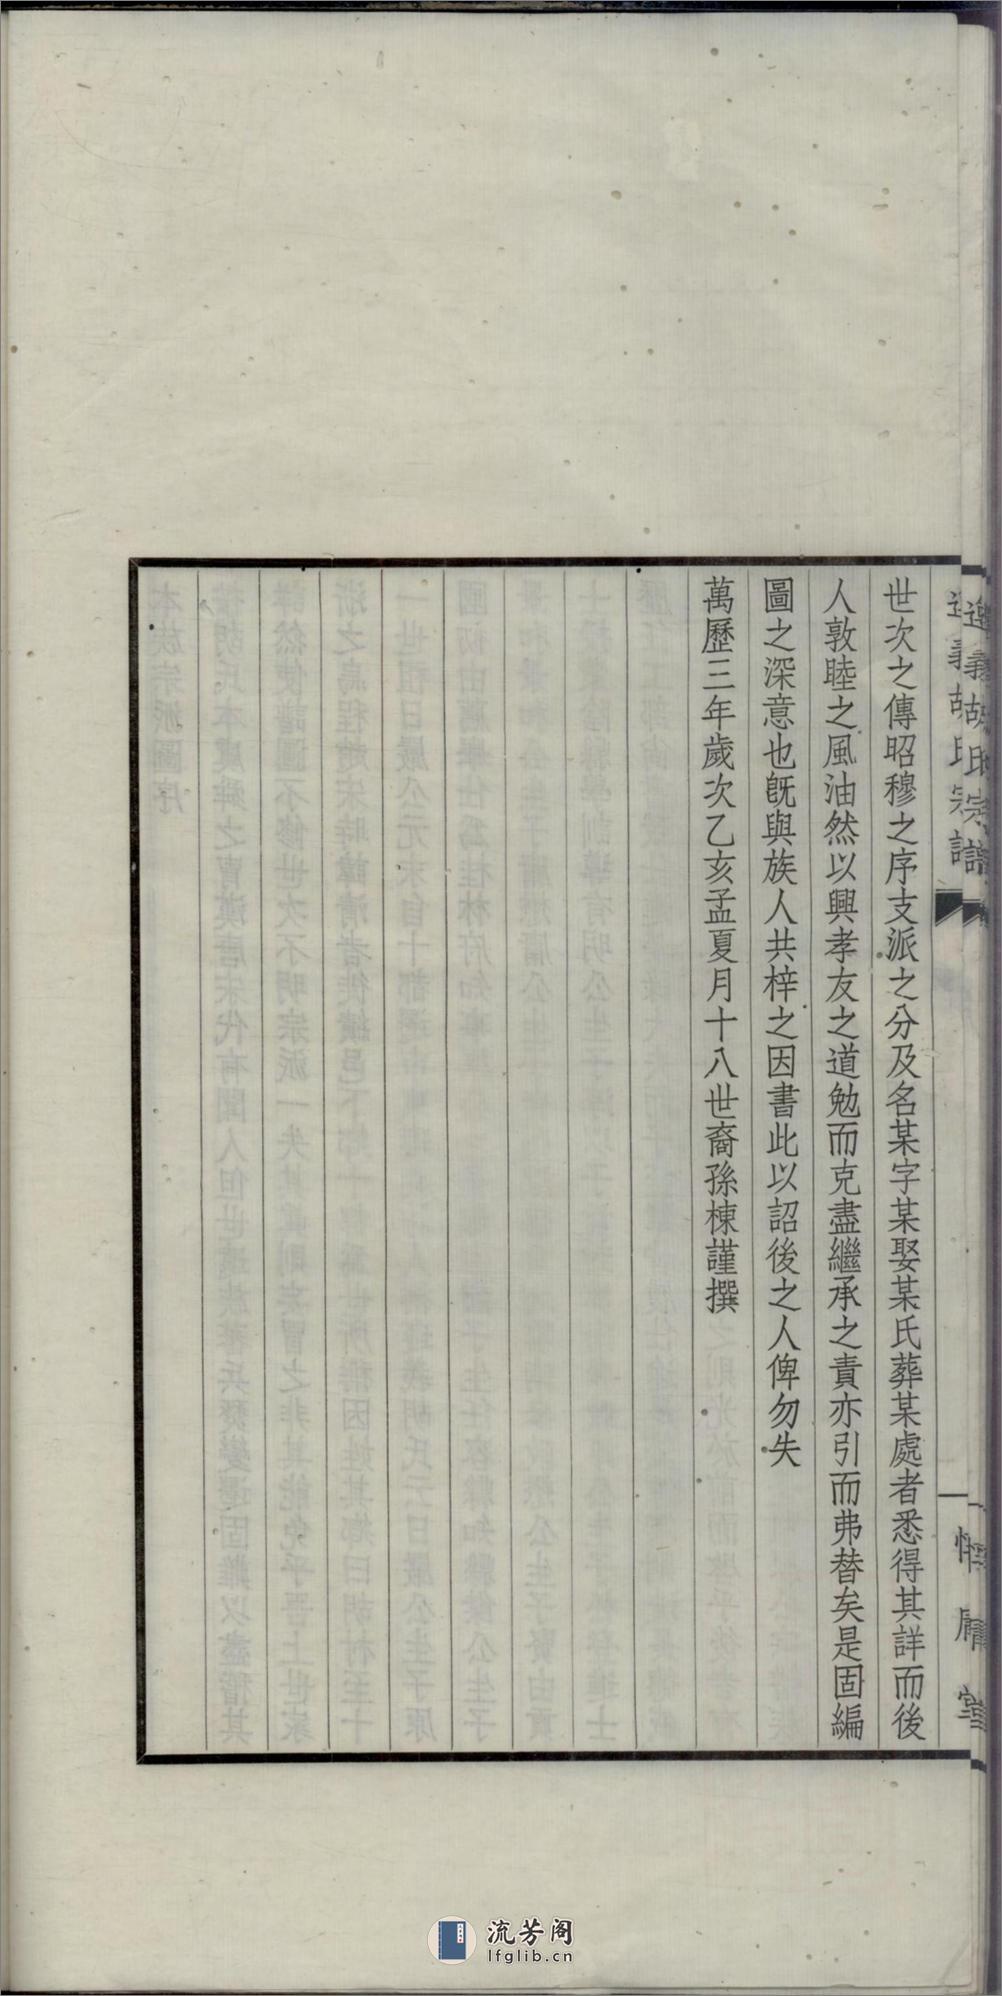 世次之傳昭穆之序支派之分及名某字某娶某氏葬某處者悉得其詳而後
人敦睦之風油然以興孝友之道勉而克盡繼承之責亦引而弗替矣是固編
圖之深意也旣與族人共梓之因書此以詔後之人俾勿失
萬歷三年歲次乙亥孟夏月十八世裔孫棟謹撰
流芳阁
lfglib.cn